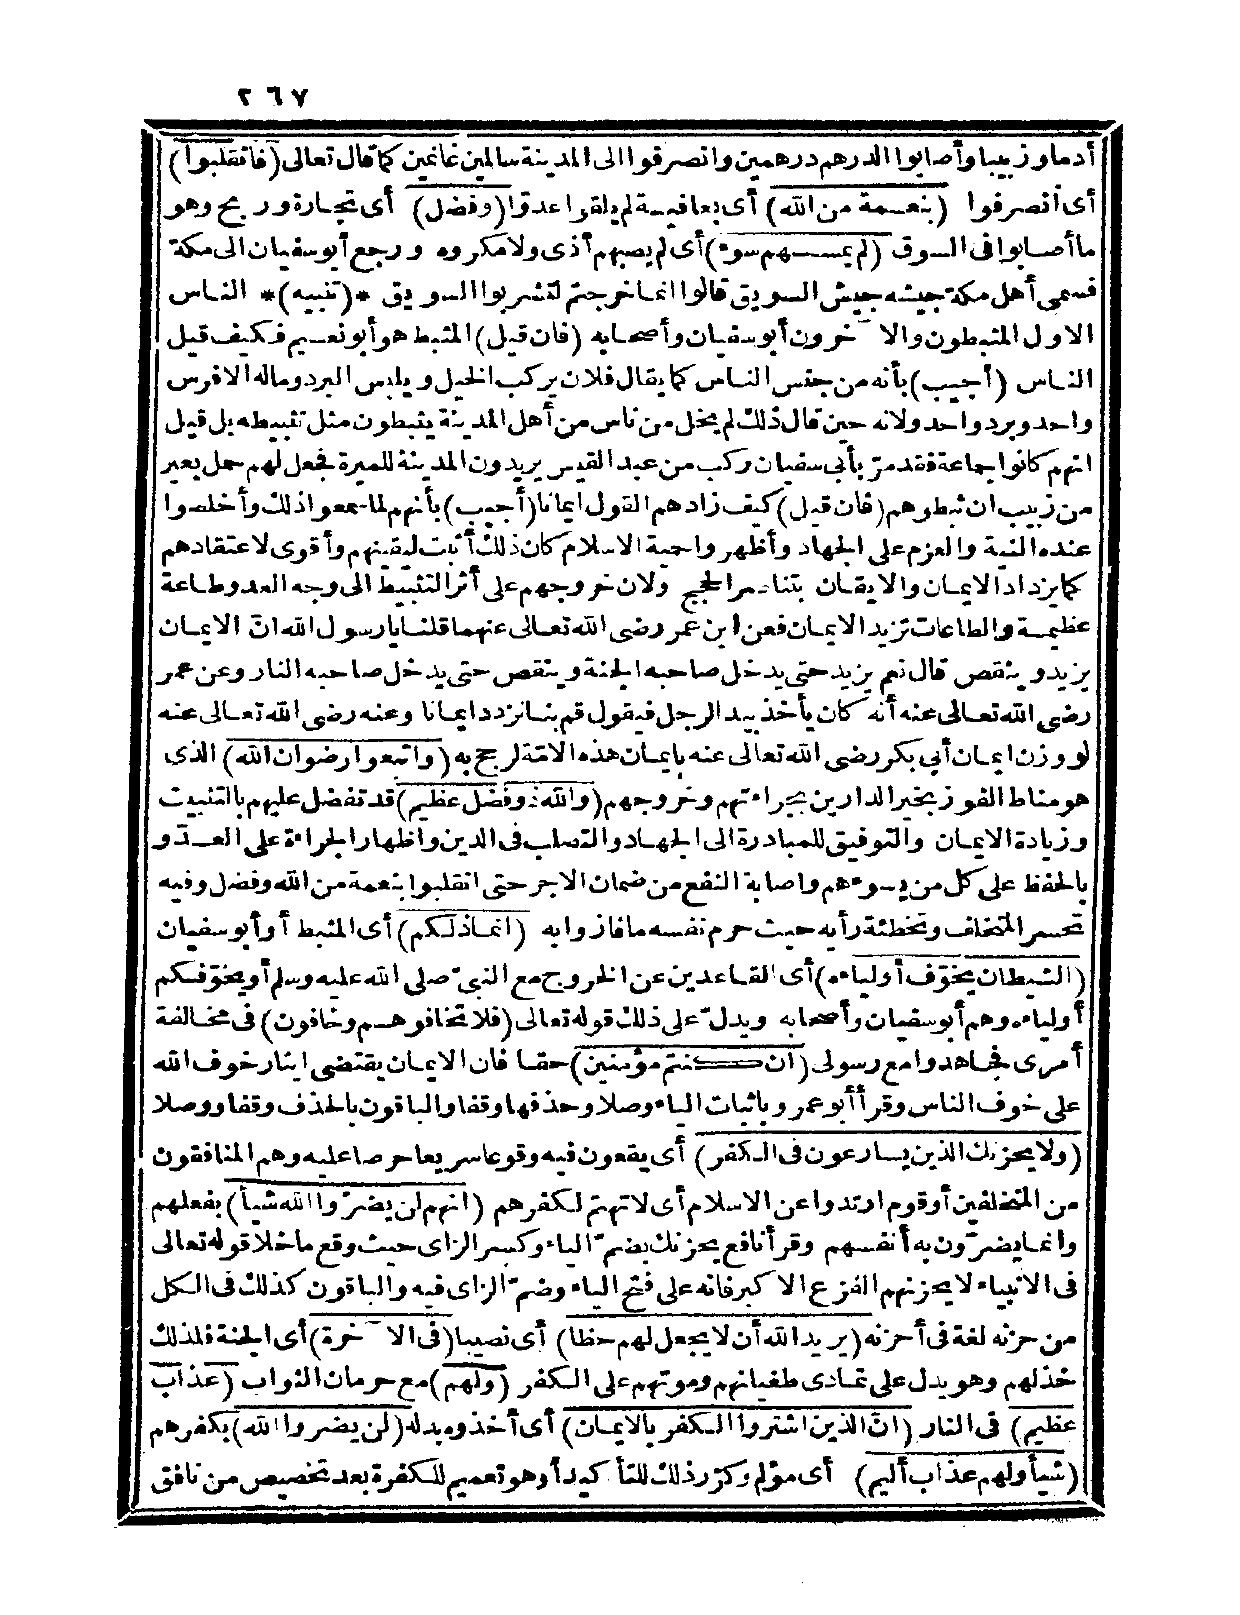 ٢٦٧
أدما وزبيبا وأصابوا الدرهم درهمين وانصرفوا الى المدينة سالمين غانمين كما قال تعالى (فانقلبوا)
أى انصرفوا (بنعمة من الله) أى بعافية لم يلقوا عدوّا (وفضل) أى تجارة وربح وهو
ما أصابوا فى السوق (لم يمسسهم سوء) أى لم يصبهم أذى ولا مكروه ورجع أبو سفيان الى مكة
فسمى أهل مكة جيشه جيش السويق قالوا انما خرجتم لتشربوا السويق *(تنبيه)* الناس
الاول المثبطون والآخرون أبو سفيان وأصحابه (فان قيل) المثبط هو أبو نعيم فكيف قيل
الناس (أجيب) بأنه من جنس الناس كما يقال فلان يركب الخيل ويلبس البرد وماله الا فرس
واحد وبرد واحد ولانه حين قال ذلك لم يخل من ناس من أهل المدينة يثبطون مثل تثبيطه بل قيل
انهم كانوا جماعة فقد مرّ بأبى سفيان ركب من عبد القيس يريدون المدينة للميرة فجعل لهم حمل بعير
من زبيب ان ثبطوهم (فان قيل) كيف زادهم القول ايمانا (أجيب) بأنهم لما سمعوا ذلك وأخلصوا
عنده النية والعزم على الجهاد وأظهروا حمية الاسلام كان ذلك أثبت ليقينهم وأقوى لاعتقادهم
كما يزداد الايمان والايقان بتناصر الحجج ولان خروجهم على أثر التثبيط الى وجه العدو طاعة
عظيمة والطاعات تزيد الايمان فعن ابن عمر رضى الله تعالى عنهما قلنا يا رسول الله انّ الايمان
يزيد وينقص قال نعم يزيد حتى يدخل صاحبه الجنة وينقص حتى يدخل صاحبه النار وعن عمر
رضى الله تعالى عنه أنه كان يأخذ بيد الرجل فيقول قم بنا نزدد ايمانا وعنه رضى الله تعالى عنه
لو وزن ايمان أبى بكر رضى الله تعالى عنه بايمان هذه الامّة لرجح به (واتبعوا رضوان الله) الذى
هو مناط الفوز بخير الدارين بجراءتهم وخروجهم (والله ذو فضل عظيم) قد تفضل عليهم بالتثبيت
وزيادة الايمان والتوفيق للمبادرة الى الجهاد والتصلب فى الدين واظهار الجراءة على العدوّ و
بالحفظ على كل من يسوءهم واصابة النفع من ضمان الاجر حتى انقلبوا بنعمة من الله وفضل وفيه
تحسير المتخلف وتخطئة رأيه حيث حرم نفسه ما فازوا به (انما ذلكم) أى المثبط أو أبو سفيان
(الشيطان يخوّف أولياءه) أى القاعدين عن الخروج مع النبىّ صلى الله عليه وسلم أو يخوّفكم
أولياءه وهم أبو سفيان وأصحابه ويدلّ على ذلك قوله تعالى (فلا تخافوهم وخافون) فى مخالفة
أمرى فجاهدوا مع رسولى (ان كنتم مؤمنين) حقا فان الايمان يقتضى ايثار خوف الله
على خوف الناس وقرأ أبو عمرو باثبات الياء وصلا وحذفها وقفا والباقون بالحذف وقفا ووصلا
(ولا يحزنك الذين يسارعون فى الكفر) أى يقعون فيه وقوعا سريعا حرصا عليه وهم المنافقون
من المتخلفين أو قوم ارتدوا عن الاسلام أى لا تهتم لكفرهم (انهم لن يضرّوا الله شيأ) بفعلهم
وانما يضرّون به أنفسهم وقرأ نافع يحزنك بضمّ الياء وكسر الزاى حيث وقع ما خلا قوله تعالى
فى الانبياء لا يحزنهم الفزع الاكبر فانه على فتح الياء وضمّ الزاى فيه والباقون كذلك فى الكل
من حزنه لغة فى أحزنه (يريد الله أن لا يجعل لهم حظا) أى نصيبا (فى الآخرة) أى الجنة فلذلك
خذلهم وهو يدل على تمادى طغيانهم وموتهم على الكفر (ولهم) مع حرمان الثواب (عذاب
عظيم) فى النار (انّ الذين اشتروا الكفر بالايمان) أى أخذوه بدله (لن يضروا الله) بكفرهم
(شيأ ولهم عذاب أليم) أى مؤلم وكرّر ذلك للتأكيد أو هو تعميم للكفرة بعد تخصيص من نافق